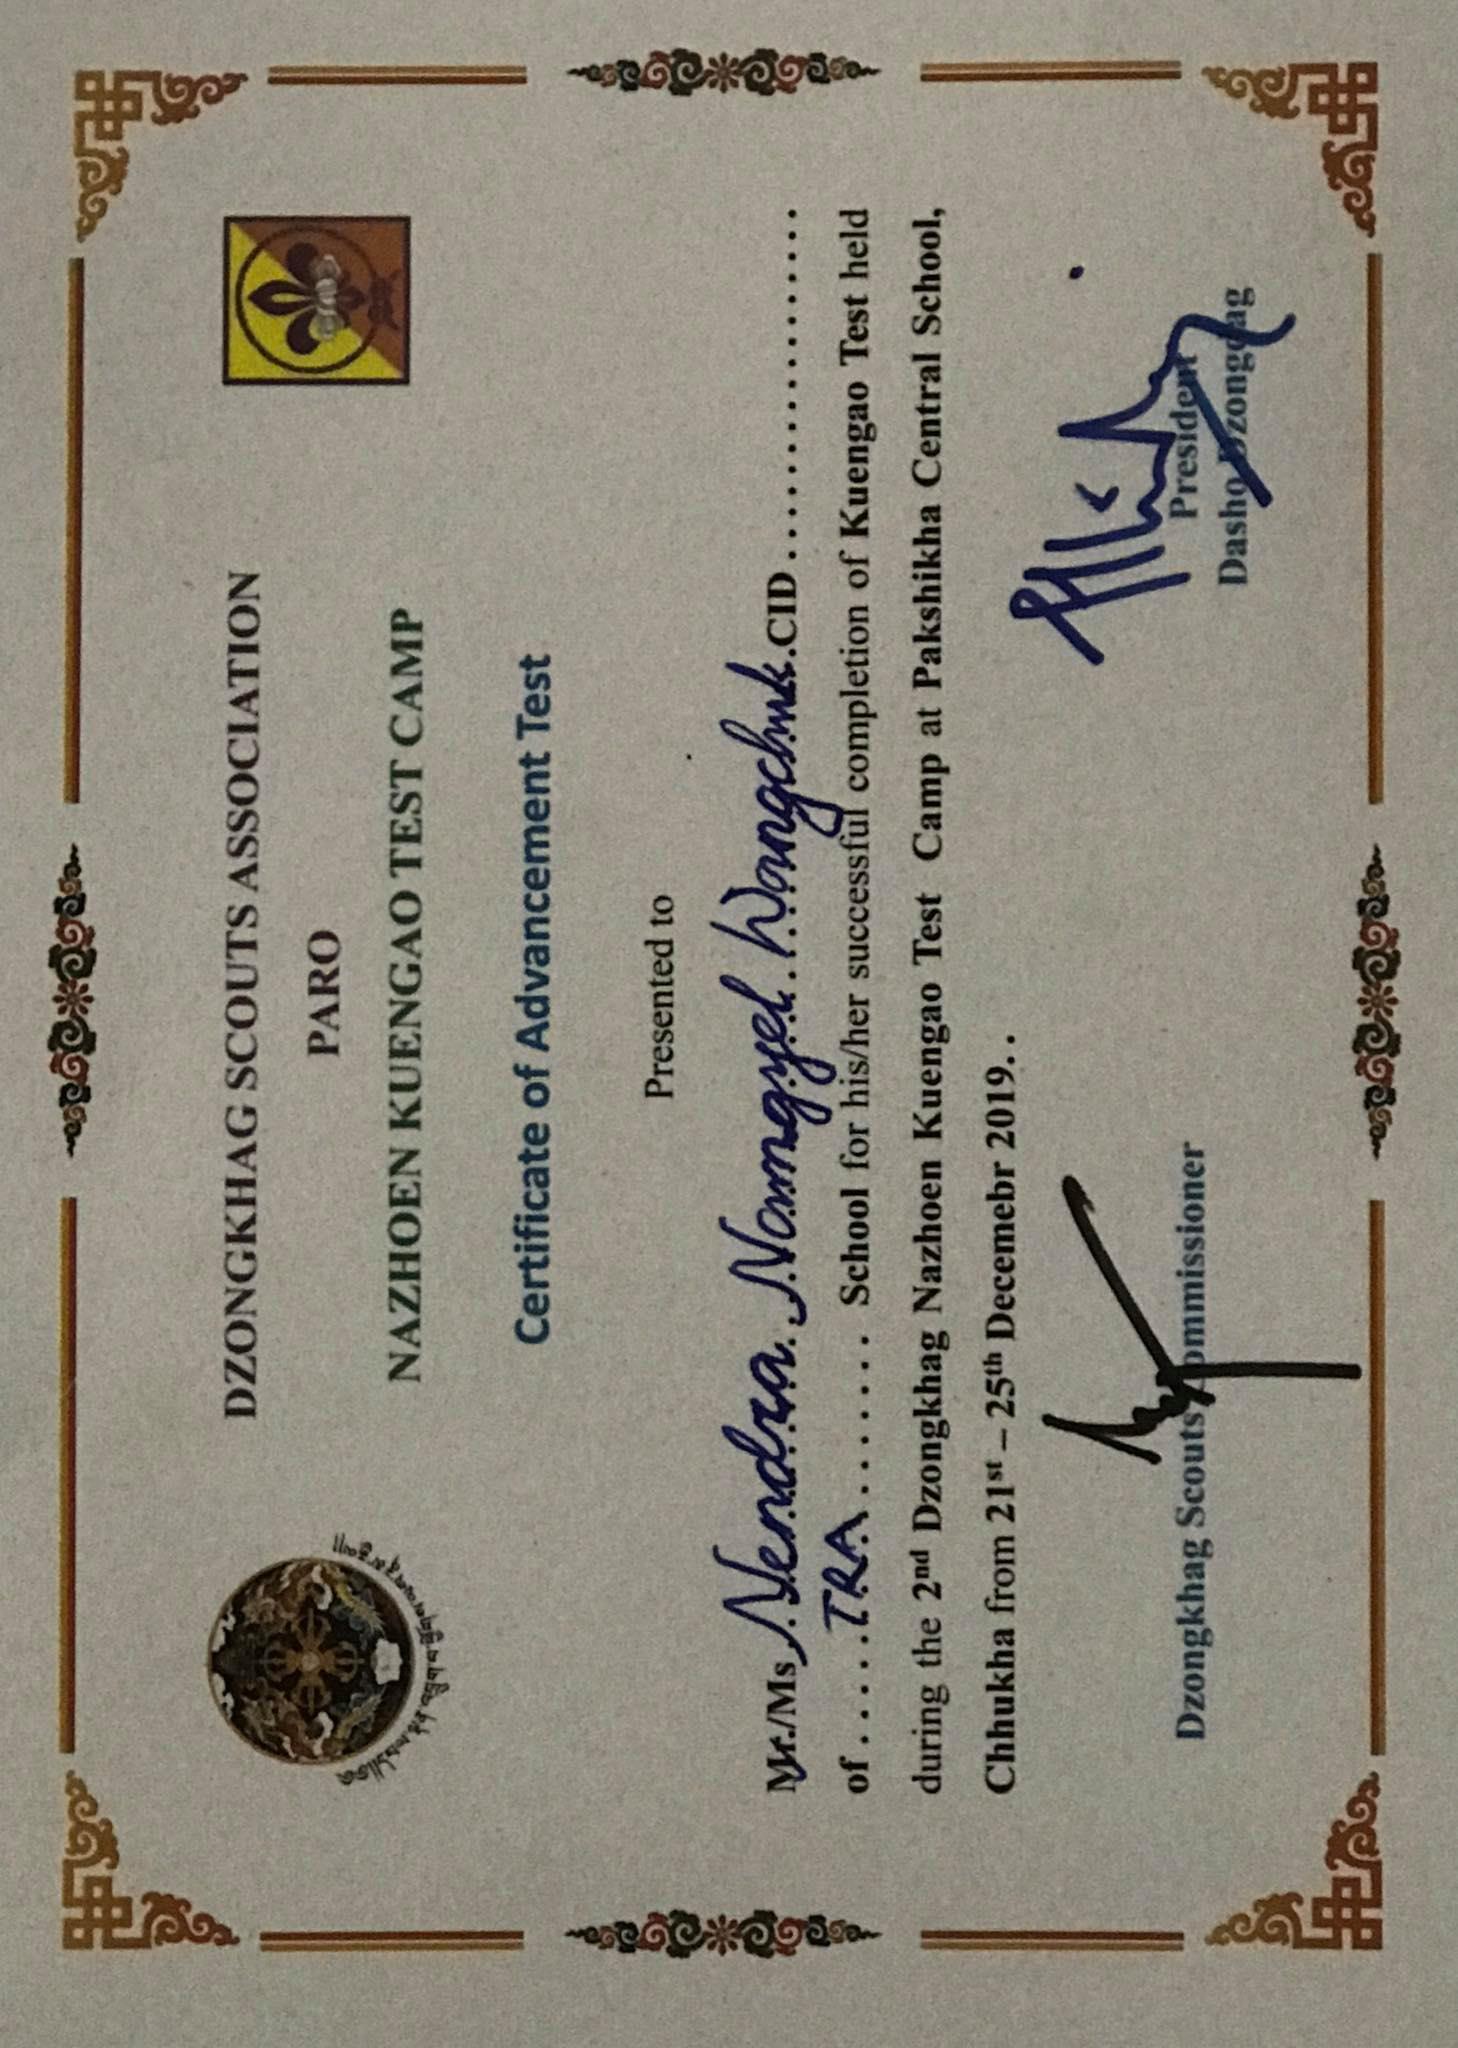 DZONGKHAG SCOUTS ASSOCIATION
PARO
NAZHOEN KUENGAO TEST CAMP
Certificate of Advancement Test
Presented to
Mr./Ms Nendra Namgyel Wangchuk CID ..................
of ..... TRA ....... School for his/her successful completion of Kuengao Test held
during the 2nd Dzongkhag Nazhoen Kuengao Test Camp at Pakshikha Central School,
Chhukha from 21st – 25th Decemebr 2019. .
Dzongkhag Scouts Commissioner
President
Dasho Dzongdag